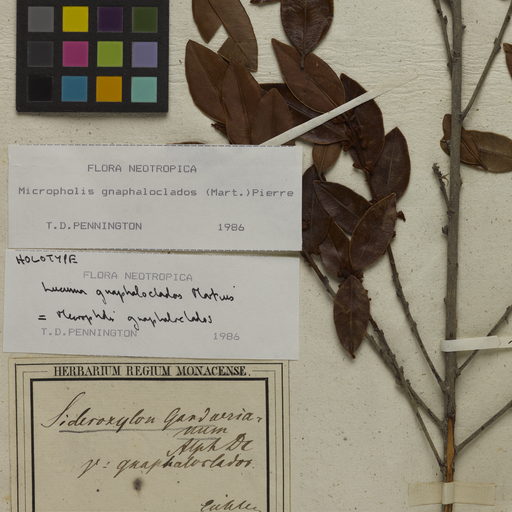 FLORA NEOTROPICA
Micropholis gnaphaloclados (Mart.) Pierre
T.D.PENNINGTON 1986
HOLOTYPE
FLORA NEOTROPICA
Lucuma gnaphaloclados Martius
= Micropholis gnaphaloclados
T.D.PENNINGTON 1986
HERBARIUM REGIUM MONACENSE.
Sideroxylon Gardneria-
num
Alph Dc
γ: gnaphaloclados